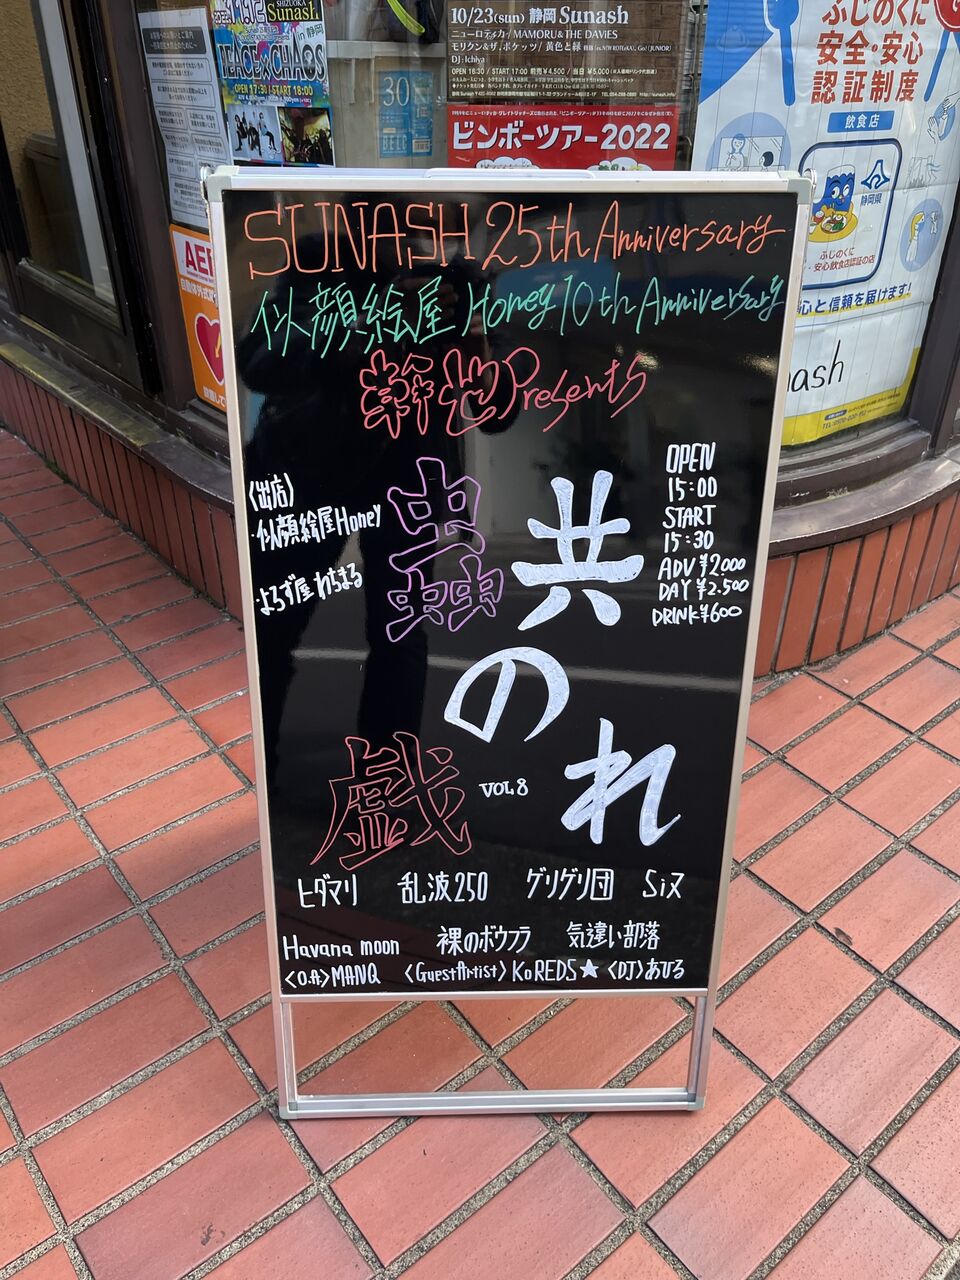 SHIZUOKA
Sunash
in 静岡
PEACE CHAOS
OPEN 17:30 / START 18:00
10/23(sun) 静岡 Sunash
ニューロティカ / MAMORU & THE DAVIES
モリクン&ザ.ポケッツ / 黄色と緑
DJ:Ichiya
OPEN 16:30 / START 17:00 前売¥4,500 / 当日 ¥5,000
ビンボーツアー2022
30
BELC
AED
ふじのくに
安全・安心
認証制度
飲食店
静岡県
ふじのくに
安心と信頼を届けます!
nash
SUNASH 25th Anniversary
似顔絵屋 Honey 10th Anniversary
幹也 Presents
〈出店〉
・似顔絵屋Honey
・よろず屋 わちまる
共のれ
蟲
戯
VOL 8
OPEN
15:00
START
15:30
ADV ¥2.000
DAY ¥2.500
DRINK¥600
ヒダマリ 乱波250 ゲリゲリ団 Siヌ
Havana moon 裸のボウフラ 気違い部落
〈O.A.〉MANQ 〈Guest Artist〉KoREDS★ 〈DJ〉あひる